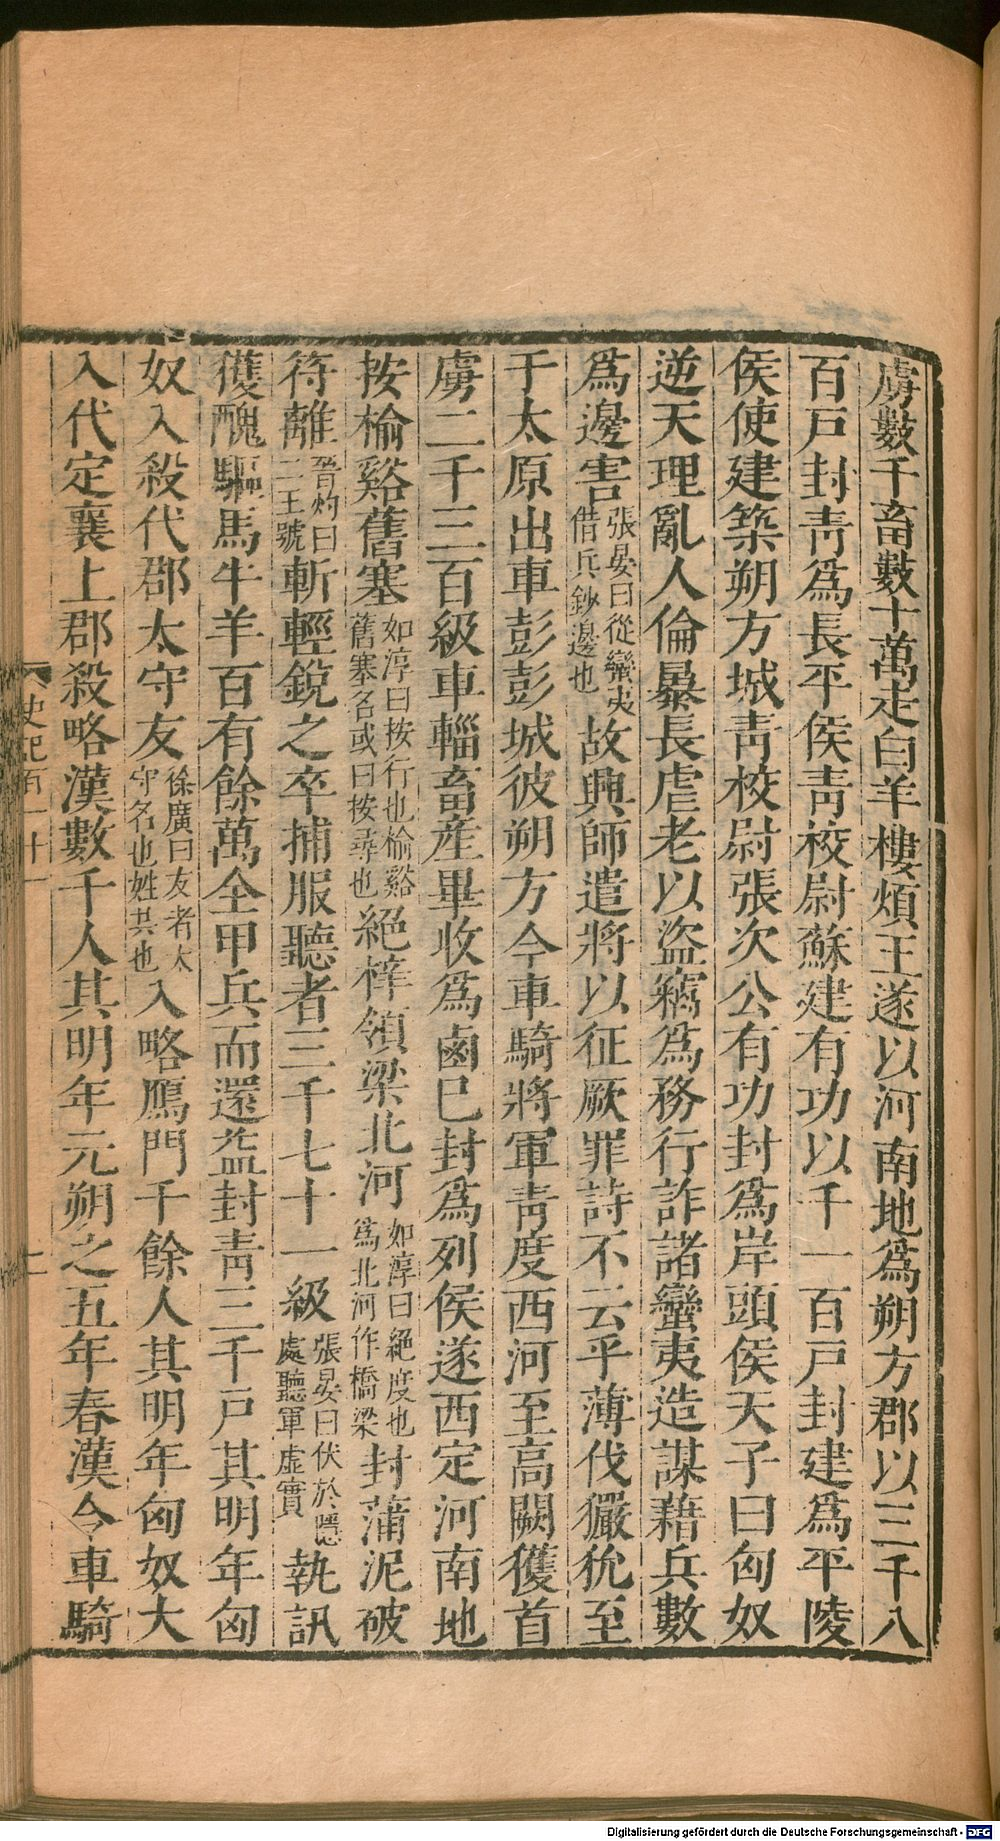 虜數千畜數十萬走白羊樓煩王遂以河南地爲朔方郡以三千八
百戸封靑爲長平侯靑校尉蘇建有功以千一百戸封建爲平陵
侯使建築朔方城靑校尉張次公有功封爲岸頭侯天子曰匈奴
逆天理亂人倫暴長虐老以盜竊爲務行詐諸蠻夷造謀藉兵數
爲邊害張晏曰從蠻夷借兵鈔邊也故興師遣將以征厥罪詩不云乎薄伐玁狁至
于太原出車彭彭城彼朔方今車騎將軍靑度西河至高闕獲首
虜二千三百級車輜畜產畢收爲鹵已封爲列侯遂西定河南地
按榆谿舊塞如淳曰按行也榆谿舊塞名或曰按尋也絕梓領梁北河如淳曰絕度也爲北河作橋梁封蒲泥破
符離晉灼曰二王號斬輕銳之卒捕服聽者三千七十一級張晏曰伏於隱處聽軍虛實執訊
獲醜驅馬牛羊百有餘萬全甲兵而還益封靑三千戸其明年匈
奴入殺代郡太守友徐廣曰友者太守名也姓共也入略鴈門千餘人其明年匈奴大
入代定襄上郡殺略漢數千人其明年元朔之五年春漢令車騎
史記百一十一
十一
Digitalisierung gefördert durch die Deutsche Forschungsgemeinschaft - DFG